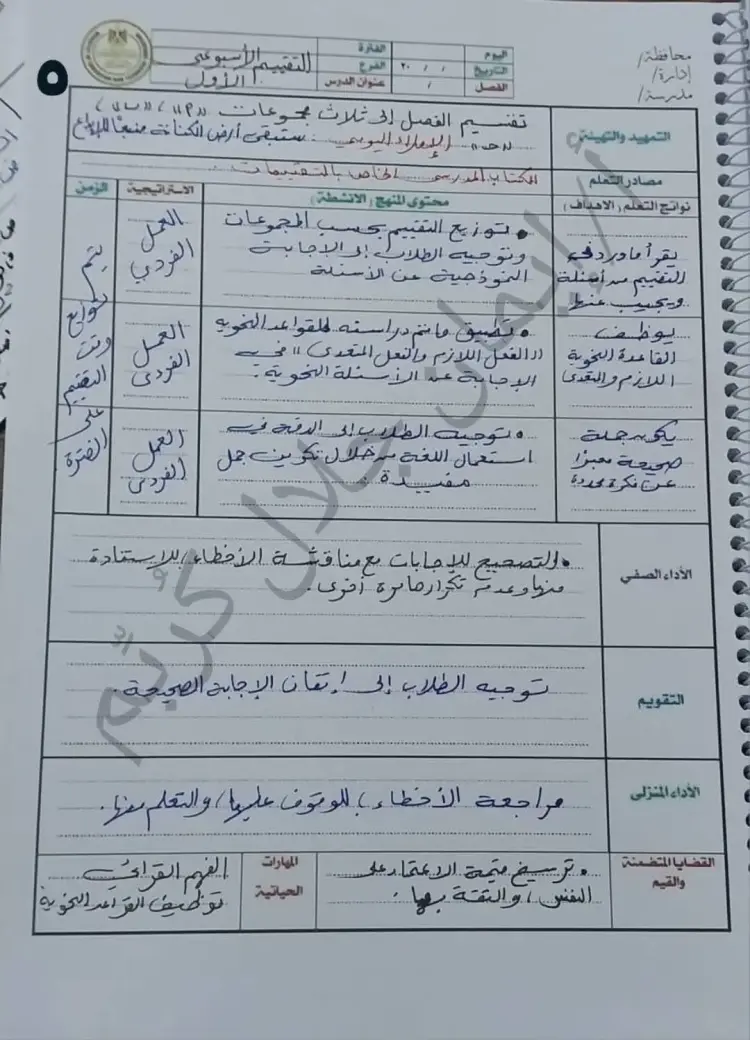 ٥
محافظة/
إدارة/
مدرسة/
اليوم
التاريخ / / ٢٠
الفصل /
الفترة
الفرع
عنوان الدرس
التقييم الأسبوعى
الأول
التمهيد والتهيئة
تقسيم الفصل إلى ثلاث مجموعات "P" "ب"
"حـ" الإملاء اليومى: ستبقى أرض الكنانة منبعًا للإبداع
مصادر التعلم
الكتاب المدرسى الخاص بالتقييمات
نواتج التعلم (الأهداف)
محتوى المنهج (الأنشطة)
الاستراتيجية
الزمن
يقرأ ما ورد فى
التقييم من أسئلة
ويجيب عنها
• توزيع التقييم بحسب المجموعات
وتوجيه الطلاب إلى الإجابة
النموذجية عن الأسئلة
العمل
الفردي
يتم
توزيع
وقت
التقييم
على
الفترة
يوظف
القاعدة النحوية
اللازم والمتعدى
• تطبيق ما تم دراسته للقواعد النحوية
"الفعل اللازم والفعل المتعدى" فى
الإجابة عن الأسئلة النحوية.
العمل
الفردى
يكون جملة
صحيحة معبرًا
عن فكرة محددة
• توجيه الطلاب إلى الدقة فى
استعمال اللغة من خلال تكوين جمل
مفيدة.
العمل
الفردى
الأداء الصفي
• التصحيح للإجابات مع مناقشة الأخطاء؛ للاستفادة
منها وعدم تكرارها مرة أخرى.
التقويم
توجيه الطلاب إلى إتقان الإجابة الصحيحة.
الأداء المنزلى
مراجعة الأخطاء؛ للوقوف عليها، والتعلم منها.
القضايا المتضمنة
والقيم
• ترسيخ قيمة الاعتماد على
النفس، والثقة بها.
المهارات
الحياتية
الفهم القرائى
توظيف القواعد النحوية
أ/ إيمان جلال كريم